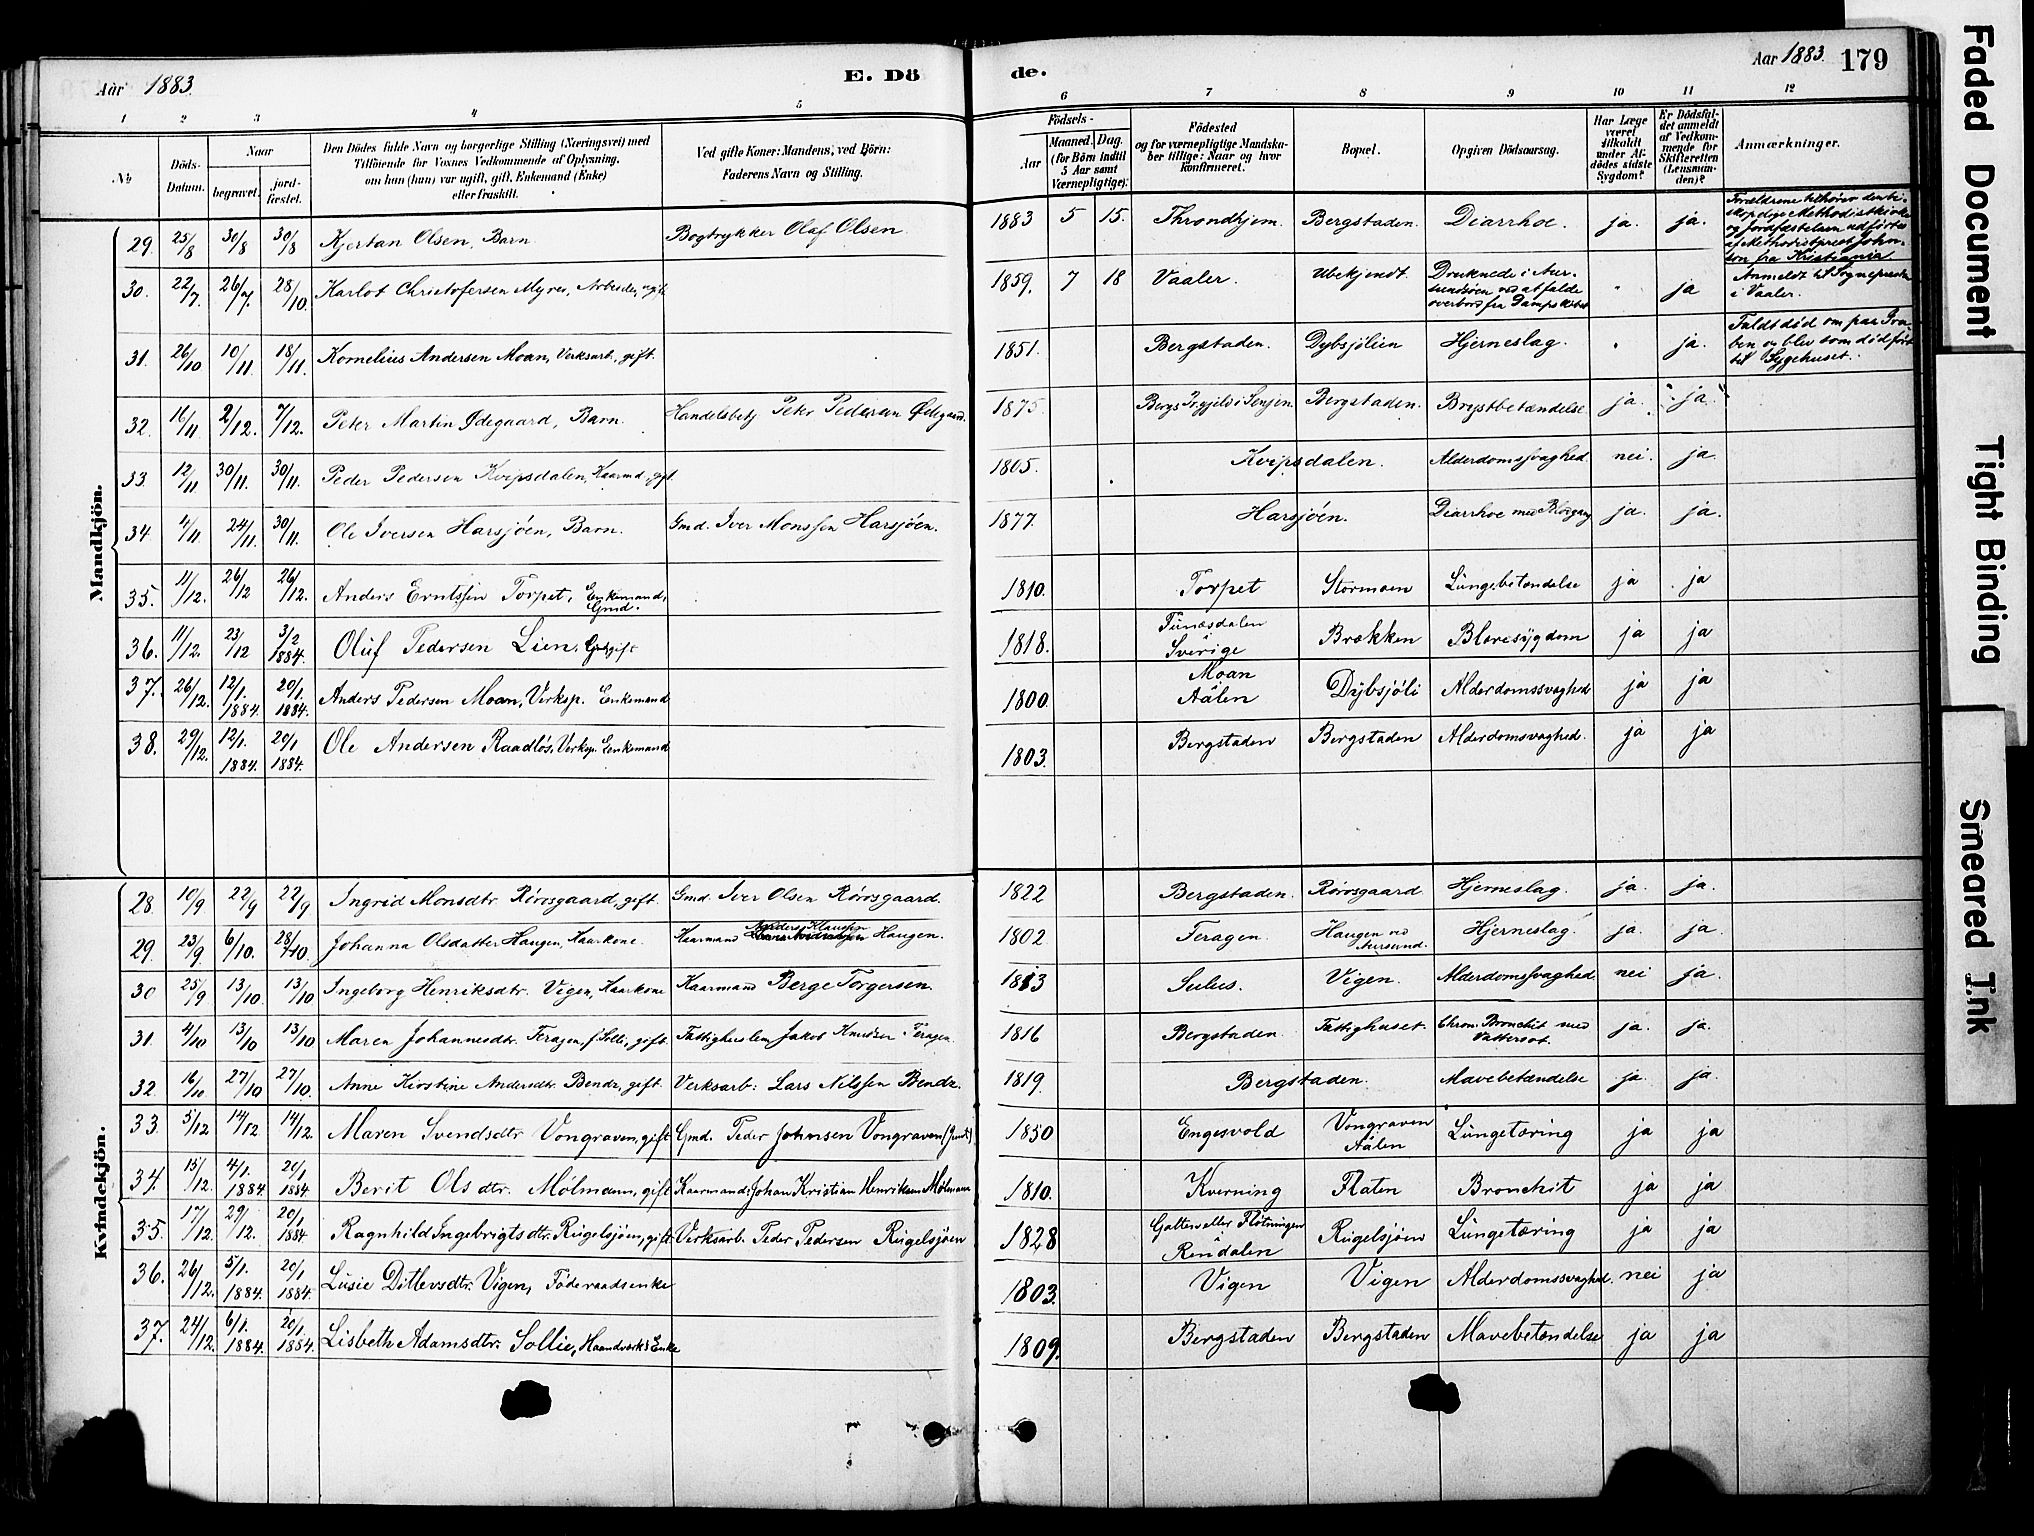 Aar 1883.
E. Dö
de.
Aar 1883.
179
1
2
3
4
5
6
7
8
9
10
11
12
№
Döds-
Datum.
Naar
begravet.
jord-
fæstet.
Den Dödes fulde Navn og borgerlige Stilling (Næringsvei) med
Tilföiende for Voxnes Vedkommende af Oplysning,
om han (hun) var ugift, gift, Enkemand (Enke)
eller fraskilt.
Ved gifte Koner: Mandens, ved Börn:
Faderens Navn og Stilling.
Födsels-
Aar
Maaned.
Dag.
(for Börn indtil
5 Aar samt
Værnepligtige).
Födested
og for værnepligtige Mandska-
ber tillige: Naar og hvor
konfirmeret.
Bopæl.
Opgiven Dödsaarsag.
Har Læge
været
tilkaldt
under Af-
dödes sidste
Sygdom?
Er Dödsfal-
det anmeldt
af Vedkom-
mende for
Skifteretten
(Lensman-
den)?
Anmærkninger.
Mandkjön.
29. 25/8 30/8 30/8 Kjertan Olsen, Barn. Bogtrykker Olaf Olsen. 1883 5 15. Throndhjem. Bergstaden. Diarrhoe. ja. ja. Forældrene tilhører den bi-
skopelige Methodistkirke
og Jordfæstelsen udførtes
af Methodistpræst John-
son fra Kristiania
30. 22/7. 26/7. 28/10 Karlot Christofersen Myres, Arbeider, ugift 1859. 7 18 Vaaler. Ubekjendt. Druknede i Aur-
sundsøen ved at falde
overbord fra Dampskibet " ja Anmeldt til Sognepresten
i Vaaler.
31. 26/10 10/11. 18/11. Kornelius Andersen Moan, Verksarb., gift. 1851. Bergstaden. Dybsjølien Hjerneslag. " ja. Faldt død om paa Gru-
ben og blev som død ført
til Sygehuset.
32. 16/11 2/12. 7/12. Peter Martin Ødegaard, Barn. Handelsbetj. Peter Pedersen Ødegaard. 1875. Bergs Prgjeld i Senjen. Bergstaden. Brystbetændelse ja. ja.
33. 12/11 30/11. 30/11. Peder Pedersen Kvipsdalen, Kaarmd., gift. 1805. Kvipsdalen. Alderdomssvaghed. nei. ja.
34. 4/11 24/11. 30/11. Ole Iversen Harsjøen, Barn. Gmd. Iver Monssen Harsjøen. 1877. Harsjøen. Diarrhoe med Blodgang ja. ja.
35. 11/12. 26/12 26/12. Anders Erntssen Torpet, Enkemand, Gmd. 1810. Torpet Stormoen Lungebetændelse ja ja
36. 11/12. 23/12 3/2 1884. Oluf Pedersen Lien, Gmd. gift 1818. Funæsdalen
i Sverige Brækken Blæresygdom ja ja
37. 26/12. 12/1. 1884. 20/1. 1884. Anders Pedersen Moan, Verksp. Enkemand 1800. Moan
Aalen Dybsjöli Alderdomssvaghed ja ja
38. 29/12. 12/1. 1884. 20/1 1884. Ole Andersen Raadlös, Verksp. Enkemand 1803. Bergstaden Bergstaden Alderdomsvaghed. ja ja
Kvindekjön.
28. 10/9 22/9 22/9 Ingrid Monsdtr. Rörosgaard, gift. Gmd. Iver Olsen Rörosgaard. 1822 Bergstaden. Rörosgaard. Hjerneslag. ja. ja.
29. 23/9 6/10. 28/10. Johanna Olsdatter Haugen, Kaarkone. Kaarmand Anders Klausen Haugen. 1802 Feragen. Haugen ved
Aursund. Hjerneslag. ja. ja.
30 25/9 13/10. 13/10 Ingeborg Henriksdtr. Vigen, Kaarkone Kaarmand Berge Torgersen. 1813 Sulus. Vigen. Alderdomssvaghed nei ja.
31. 4/10 13/10 13/10 Maren Johannesdtr. Feragen f. Solli, gift. Fattighuslem Jakob Knudsen Feragen. 1816 Bergstaden. Fattighuset. Chron. Bronchit med
Vattersot. ja. ja.
32. 16/10 27/10 27/10. Anne Kirstine Andersdtr. Bendz, gift. Verksarb: Lars Nilssen Bendz. 1819. Bergstaden. Mavebetændelse ja. ja.
33. 5/12 14/12. 14/12. Maren Svendsdtr Vongraven, gift Gmd. Peder Johnsen Vongraven 1850 Engesvold Vongraven
Aalen Lungetæring ja ja
34. 15/12. 4/1. 1884. 20/1 1884. Berit Olsdtr. Mölmann, gift Kaarmand: Johan Kristian Henriksen Mölmann 1810. Kverning Flaten Bronchit ja ja
35. 17/12. 29/12. 20/1 1884 Ragnhild Ingebrigtsdtr. Rugelsjöen, gift Verksarb. Peder Pedersen Rugelsjöen 1828 Galten eller Flötningen
Rendalen Rugelsjöen Lungetæring ja ja
36. 26/12. 5/1. 1884. 20/1 1884. Lusie Ditlevsdtr. Vigen, Föderaadsenke 1803. Vigen Vigen Alderdomssvaghed. nei ja
37. 24/12. 6/1. 1884. 20/1. 1884. Lisbeth Adamsdtr. Sollie, Haandværks Enke 1809. Bergstaden Bergstaden Mavebetændelse ja ja
Faded Document
Tight Binding
Smeared Ink